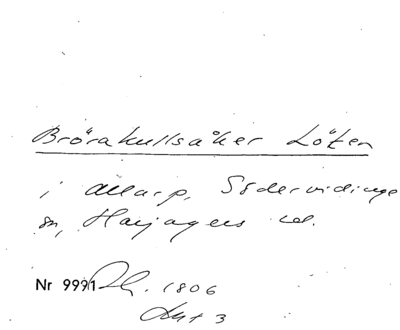 Brörakullsåker Löten
i Allarp, Södervidinge
sn, Harjagers hd.
Nr 9991 1806
Akt 3